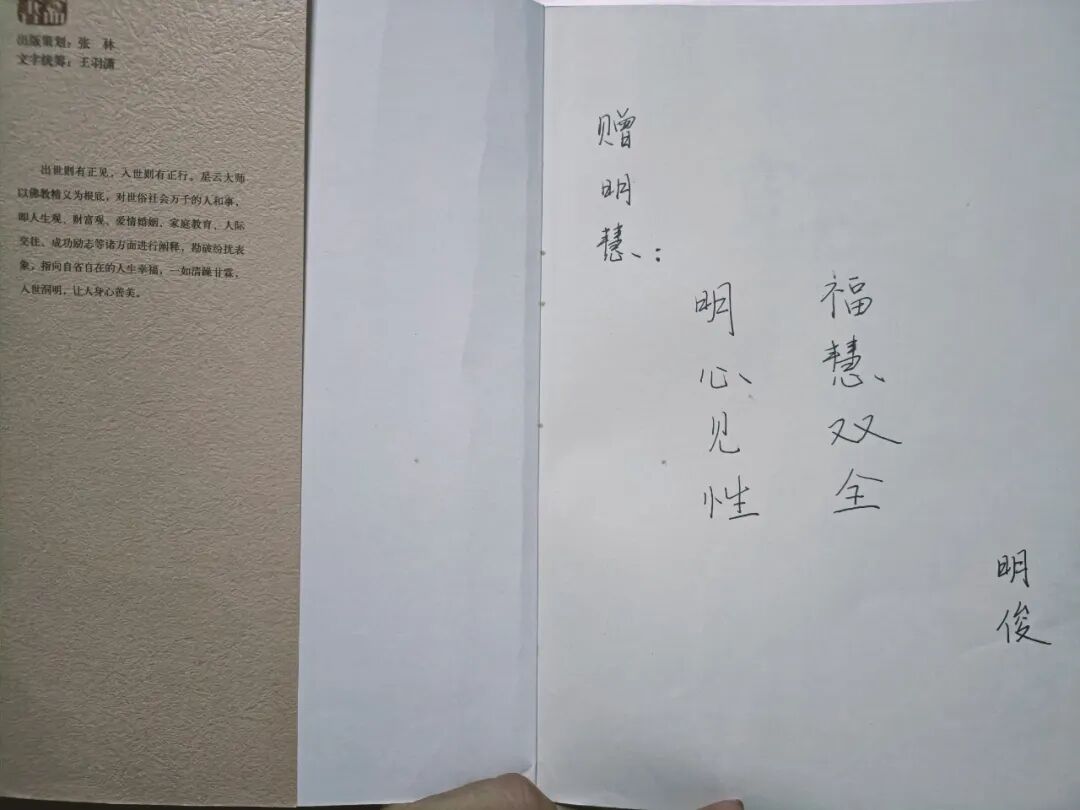 出版策划：张 林
文字统筹：王羽潇
出世则有正见，入世则有正行。星云大师
以佛教精义为根底，对世俗社会万千的人和事，
即人生观、财富观、爱情婚姻、家庭教育、人际
交往、成功励志等诸方面进行阐释，勘破纷扰表
象，指向自省自在的人生幸福，一如清躁甘霖，
入世洞明，让人身心善美。
赠明慧：
明心见性
福慧双全
明俊